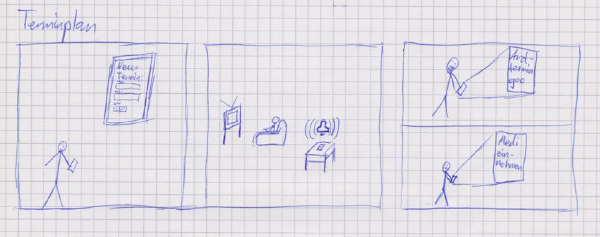 Terminplan
Neuer
Termin:
Arzt-
termin
Medi
ein-
nehmen